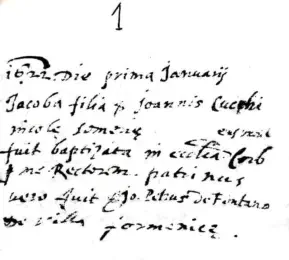 1
1622 Die prima Januarij
Jacoba filia Joannis Cucchi
nicolę
fuit baptizata in eccl.a Corb
p me Rectorem. patrinus
vero fuit Jo. Petrus de Fontano
de villa formenicę.